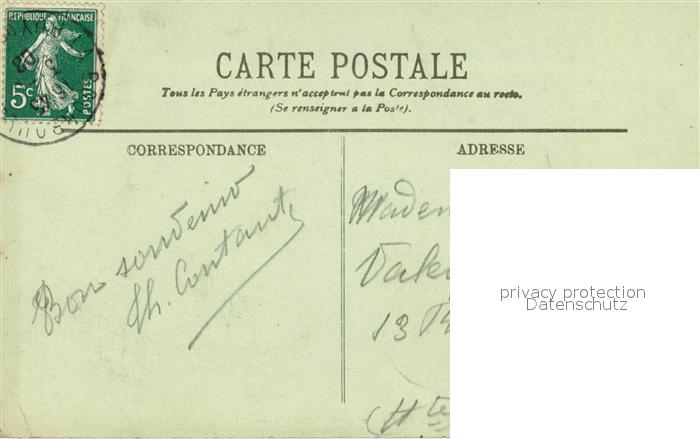 REPUBLIQUE FRANÇAISE
5c
POSTES
CARTE POSTALE
Tous les Pays étrangers n'acceptent pas la Correspondance au recto.
(Se renseigner a la Poste).
CORRESPONDANCE
ADRESSE
Bon souvenir
Th. Contant
Madem
13
(Hte
privacy protection
Datenschutz